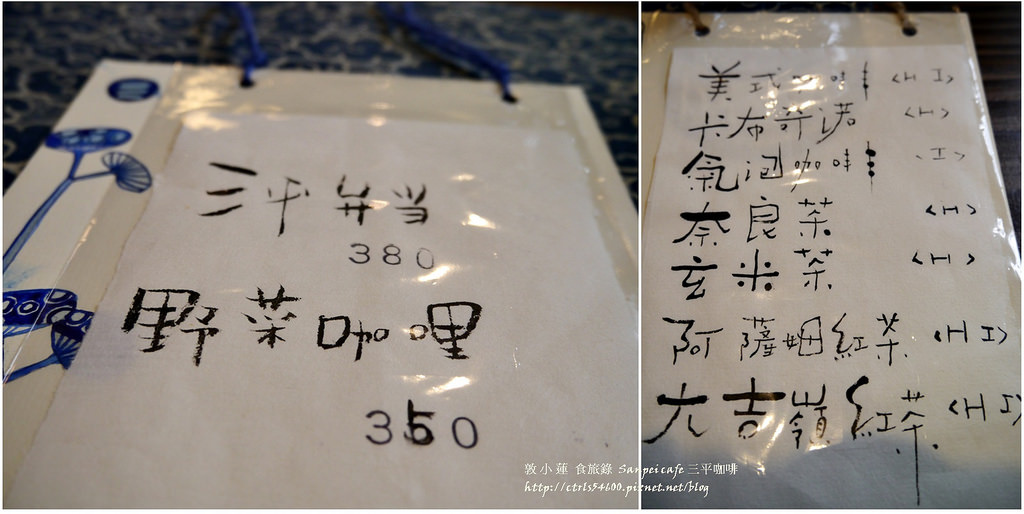 三平弁当
380
野菜咖哩
350
美式咖啡 <H I>
卡布奇諾 <H>
氣泡咖啡 <I>
奈良茶 <H>
玄米茶 <H>
阿薩姆紅茶 <H I>
大吉嶺紅茶 <H I>
敦小蓮 食旅錄 Sanpei cafe 三平咖啡
http://ctrls54600.pixnet.net/blog